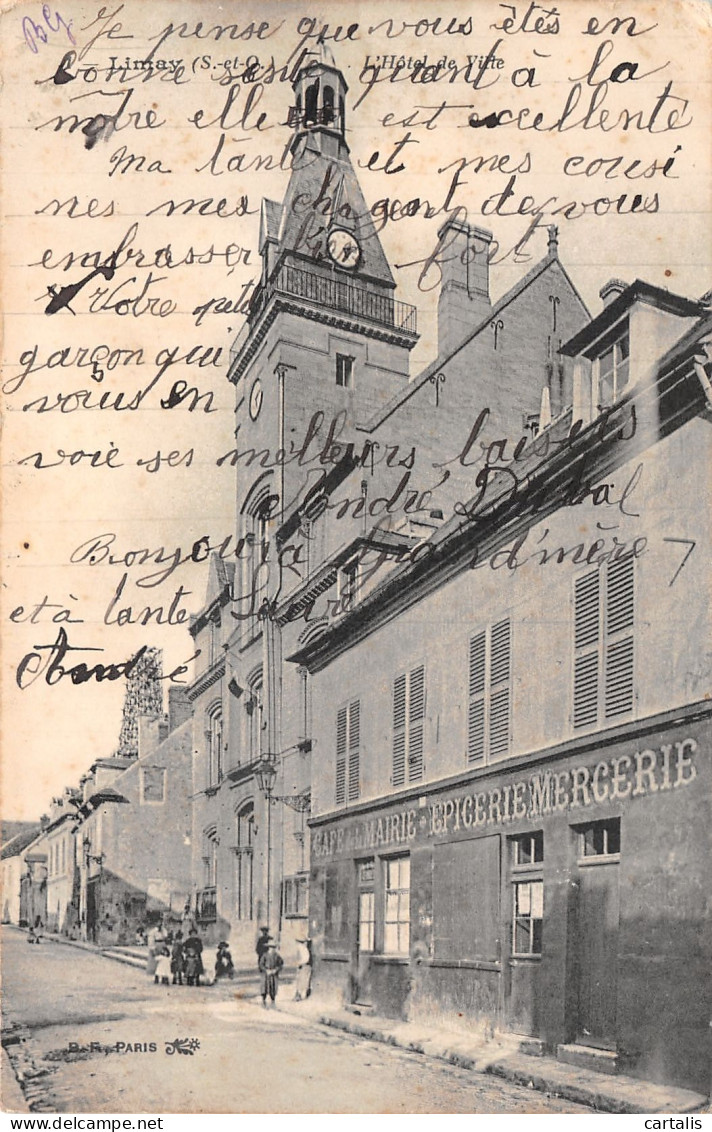 BG
Je pense que vous êtes en
Limay (S.-et-O.) L'Hôtel de Ville
bonne santé quant à la
nôtre elle est excellente
Ma tante et mes cousi
nes me chargent de vous
embrasser bien fort
Votre petit
garçon qui
vous en
voie ses meilleurs baisers
André Dubal
Bonjour à grand'mère
et à tante Laure
André
CAFÉ DE LA MAIRIE - EPICERIE MERCERIE
B.F., PARIS
cartalis
cartalis.com